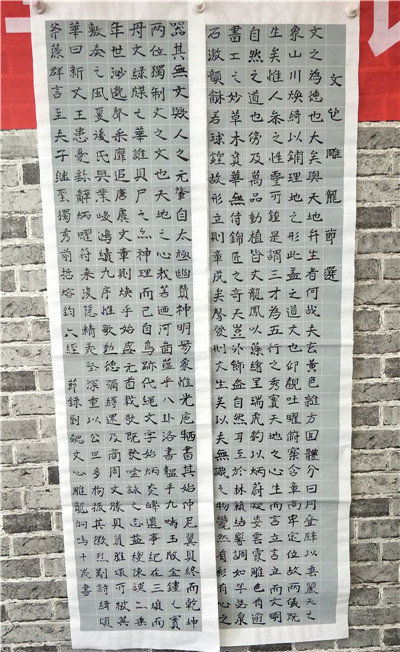 文心雕龍節選
文之為德也大矣與天地并生者何哉夫玄黃色雜方圓體分日月叠璧以垂麗天之
象山川煥綺以鋪理地之形此盖之道文也仰觀吐曜俯察含章高卑定位故兩儀既
生矣惟人參之性靈所鍾是謂三才為五行之秀實天地之心而言立言立而文明
自然之道也傍及萬品動植皆文龍鳳以藻繪呈瑞虎豹以炳蔚凝姿雲霞雕色有逾
畫工之妙草木賁華無待錦匠之奇夫豈外飾盖自然耳至於林籟結響調如竽瑟泉
石激韻龢若球鍠故形立則章成矣聲發則文生矣夫以無識之物鬱然有彩有心之
器其無文歟人文之元肇自太極幽贊神明易象惟先庖犧畫其始仲尼翼其終而乾坤
兩位獨制文之文也天地之心哉若迺河圖孕乎八卦洛書韞乎九疇玉版金鏤之實
丹文綠牒之華誰其尸之亦神理而已自鳥跡代繩文字始炳炎皞遺事紀在三墳而
年世渺邈聲采靡追唐虞文章則煥乎始盛元首載歌既發吟詠之志益稷陳謨亦垂
敷奏之風夏後氏興業峻鴻績九序惟歌勳德彌縟逮及商周文勝其質雅頌所被英
華日新文王患憂繇辭炳曜符采復隱精義堅深重以公旦多材振其徽烈剬詩緝頌
斧藻群言至夫子繼聖獨秀前哲熔鈞六經 節錄劉勰文心雕龍 書